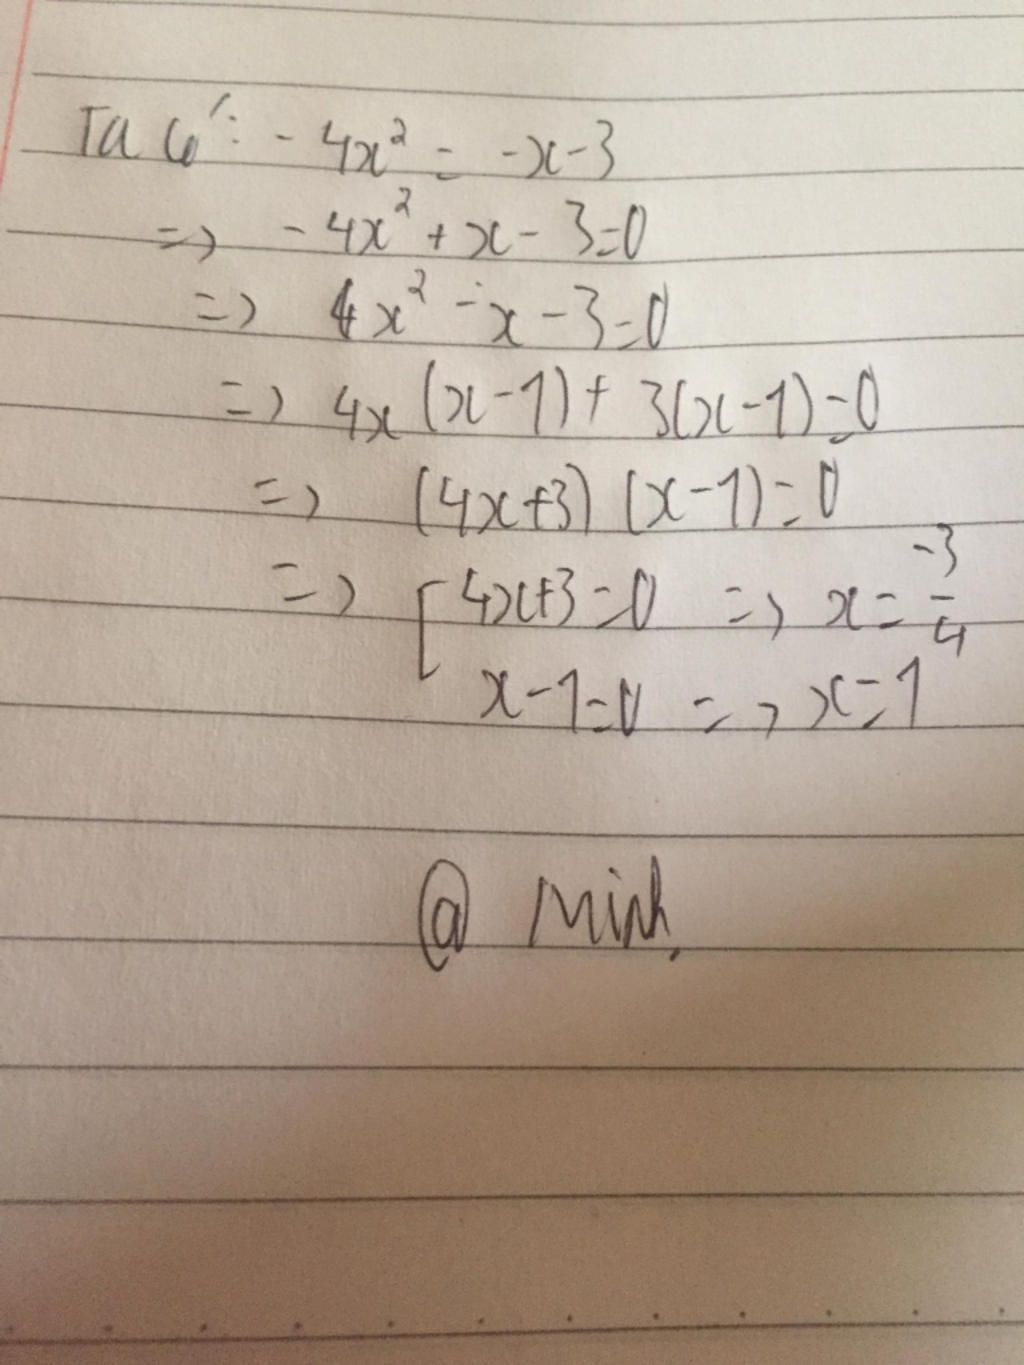 Ta có: - 4x² = -x-3
=> - 4x² + x - 3=0
=> 4x² - x - 3=0
=> 4x (x-1) + 3(x-1)=0
=> (4x+3) (x-1)=0
=> [ 4x+3=0 => x= -3/4
x-1=0 => x=1
@ Minh.